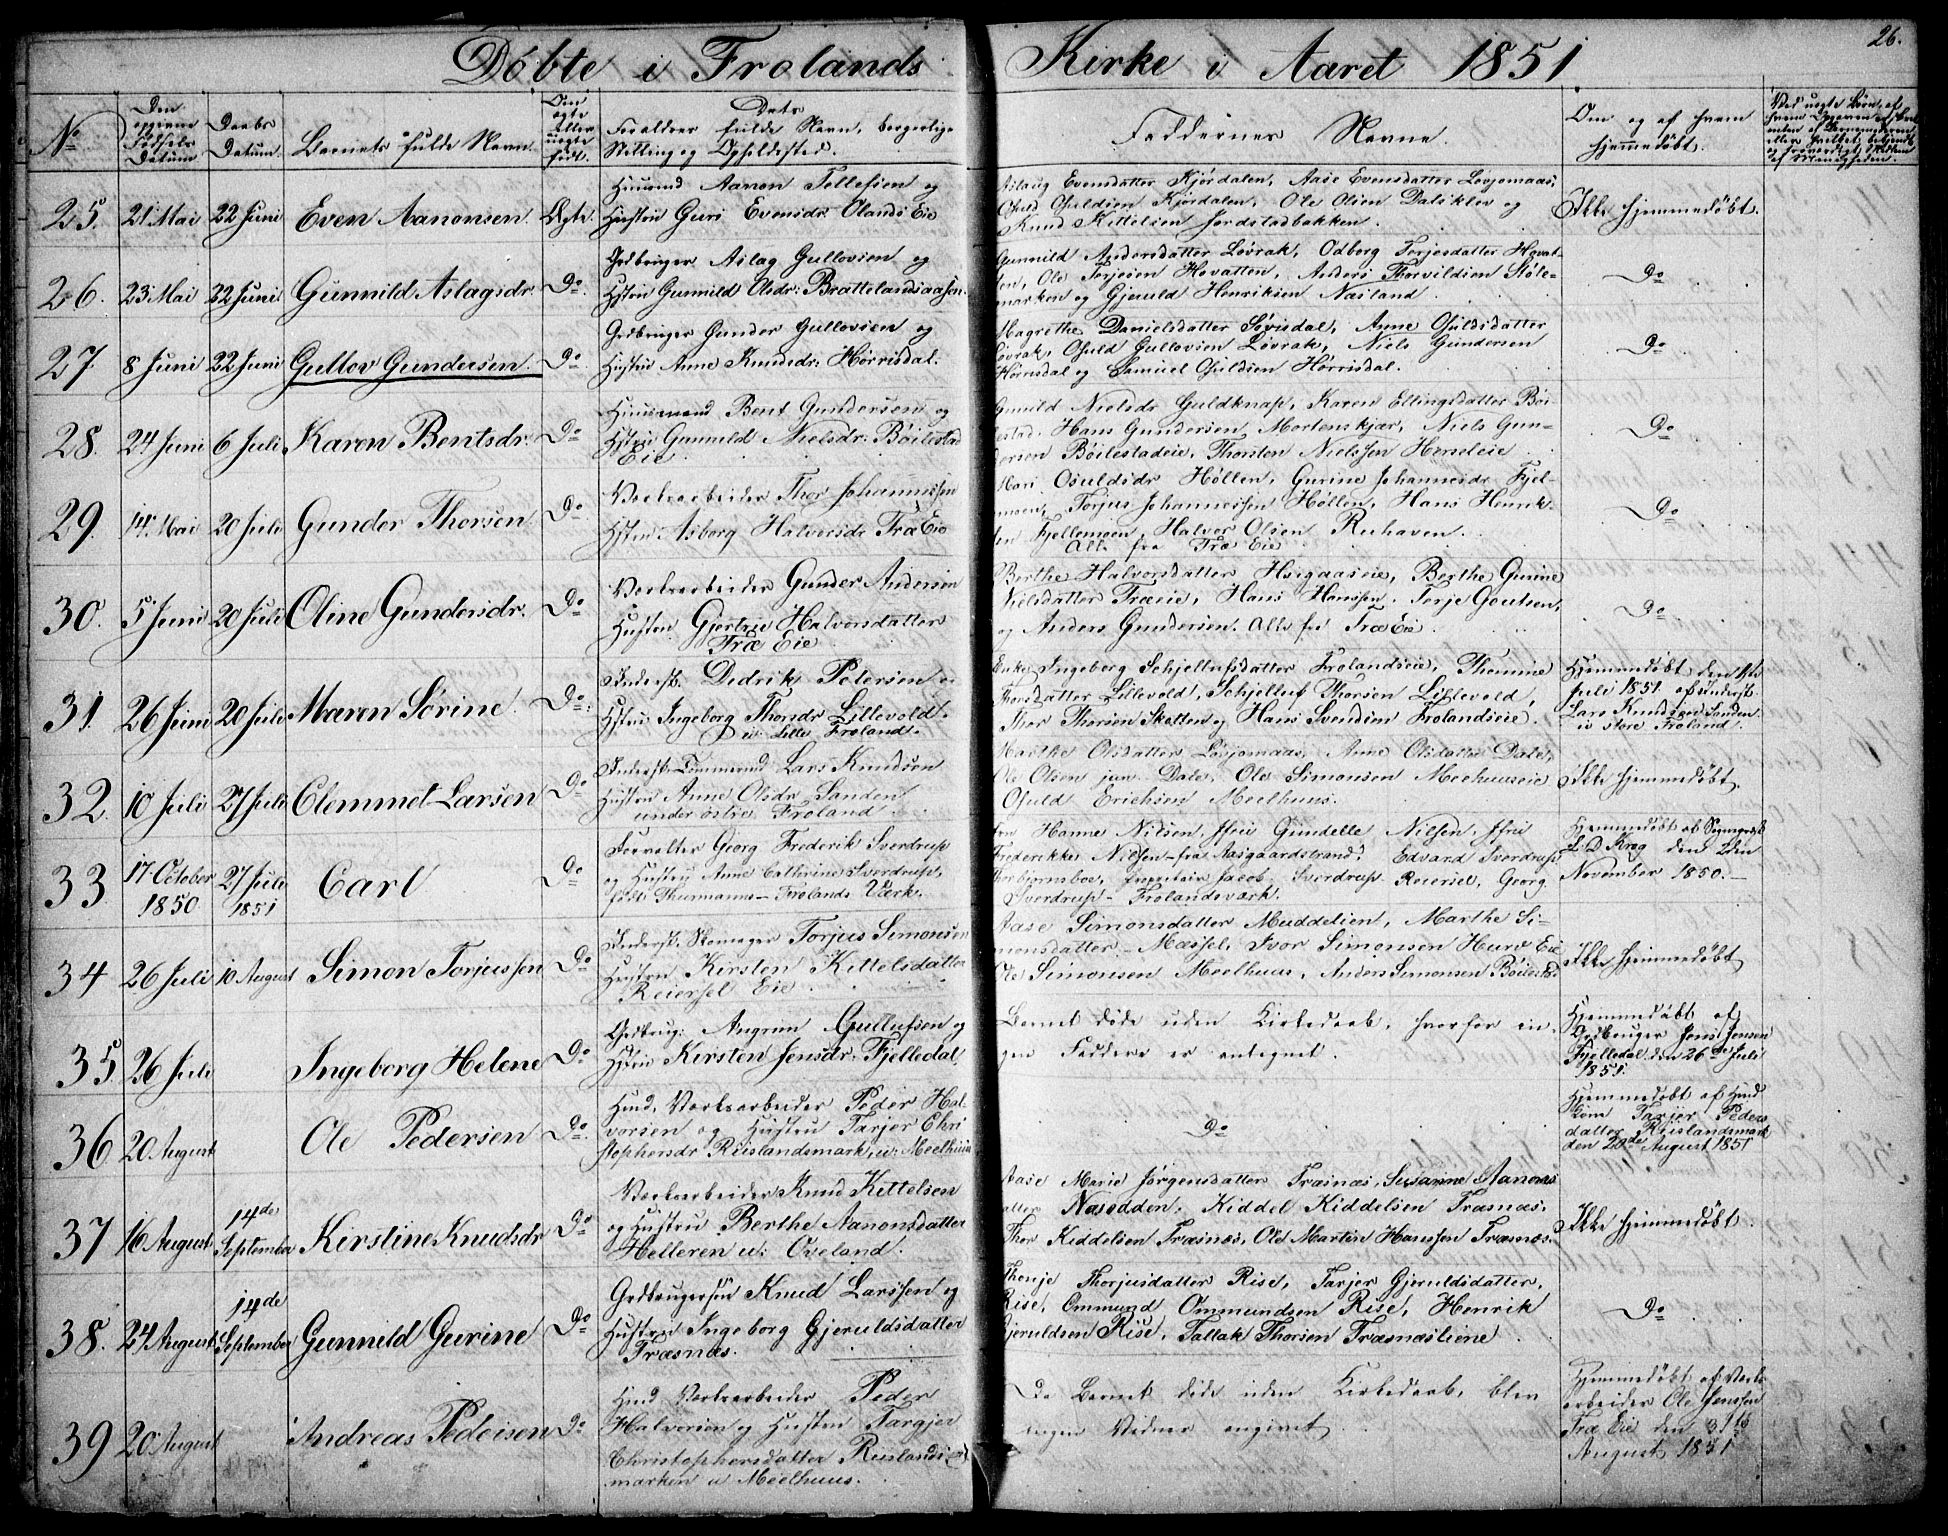 26.
Döbte i Frolands Kirke i Aaret 1851
No
Den opgivne Födsels Datum
Daabs Datum.
Barnets fulde Navn.
Om ægte eller uægte født.
Dets Foreldres fulde Navn, borgerlige Stilling og Opholdssted.
Faddernes Navne.
Om og af hvem hjemmedøbt.
25. 21 Mai 22 Juni Even Aanonsen. Ægte.
Huusmd Aanon Tellefsen og
Hustru Guri Evensdr Olands Eie
Aslaug Evensdatter Kjördalen, Aase Evensdatter Lövjomaas,
Osuld Osuldsen Kjördalen, Ole Olsen Dalsklev og
Knud Kittelsen Jordstadbakken.
Ikke hjemmedöbt.
26. 23 Mai 22 Juni Gunnild Aslagsdr Do
Grdbruger Aslag Gullovsen og
Hstru Gunnild Olsdr: Brattelandsaasen.
Gunnild Andersdatter Lövrak, Odborg Terjesdatter Hovat-
ten, Ole Terjesen Hovatten, Anders Thorvildsen Stöle-
marken og Gjeruld Henriksen Næsland.
Do
27. 8 Juni 22 Juni Gullov Gundersen. Do
Grdbruger Gunder Gullovsen og
Hustru Anne Knudsdr: Hörrisdal.
Magrethe Danielsdatter Sövisdal, Anne Osuldsdatter
Lövrak, Osuld Gullovsen Lövrak, Niels Gundersen
Hörrisdal og Samuel Osuldsen Hörrisdal.
Do
28. 24 Juni 6 Juli Karen Bentsdr: Do
Huusmand Bent Gundersen og
Hstru Gunnild Nielsdr: Böilestad
Eie.
Gunild Nielsdr Guldknap, Karen Ellingsdatter Böi-
lestad. Hans Gundersen, Mortenskjær, Niels Gun-
dersen Böilestadeie, Thorsten Nielssen Herseleie.
Do
29. 14. Mai 20 Juli Gunder Thorsen Do
Værksarbeider Thor Johannessen
Hstru Asborg Halvorsdr Træ Eie
Mari Osuldsdr Höllen, Gurine Johannesdr Fjel-
moen, Torjus Johannessen Höllen, Hans Henrik-
sen Fjellemoen, Halvor Olsen Ruhaven.
Alle fra Træ Eie
Do
30. 5 Juni 20 Juli Oline Gundersdr. Do
Værksarbeider Gunder Andersen
Hustru Gjertru Halvorsdatter
Træ Eie
Berthe Halvorsdatter Haugaaseie, Berthe Gurine
Nielsdatter Træeie, Hans Hanssen. Terje Goutsen,
og Anders Gundersen. Alle fra Træ Eie.
Do
31. 26 Juni 20 Juli Maren Sörine. Do
Inderst. Didrik Petersen og
Hstru Ingeborg Thorsdr Lillevold.
u: Lille Froland.
Enke Ingeborg Schjellufsdatter Frolandseie, Thomine
Thorsdatter Lillevold, Schjelluf Thorsen Lillevold,
Thor Thorsen Skatten og Hans Svendsen Frolandseie.
Hjemmedöbt den
Juli 1851 af Inderst.
Lars Knudsen Sanden
u store Froland
32. 10 Juli 27 Juli Clemmet Larsen Do
Inderst-Tömmermd Lars Knudsen
Hustru Anne Olsdr Sanden
under östre Froland.
Marthe Olsdatter Lövjomaas, Anne Olsdatter Dale,
Ole Olsen jun. Dale, Ole Simonsen Meelhuuseie
Osuld Erichsen Meelhuus.
Ikke hjemmedöbt.
33 17. October 1850 27 Juli 1851 Carl Do
Forvalter Georg Frederik Sverdrup
og Hustru Anne Cathrine Sverdrup,
född Thurmann - Frolands Værk.
Hanne Nilsen, Jfru Gundelle Nilsen, Jfru
Frederikke Nilsen - fra Aasgaardstrand. Edvard Sverdrup
Thorbjørnsboe, Jacob Sverdrup Reiersel, Georg
Sverdrup - Frolandsværk.
Hjemmedöbt af Sognepræst
Krog den 2den
November 1850.
34 26 Juli 10 August Simon Torjussen Do
Inderst. Skomager Torjus Simonsen
Hustru Kirsten Kittelsdatter
Reiersel Eie
Aase Simonsdatter Muddelien, Marthe Si-
monsdatter - Messel, Ivor Simonsen Hurv Eie
Ole Simonsen Meelhuus, Anders Simonsen Böilestad
Ikke hjemmedöbt
35. 26 Juli Ingeborg Helene Do
Grdbrug: Angrim Gullufsen og
Hstru Kirsten Jensdr: Fjelledal.
Barnet döde uden Kirkedaab, hvorfor in-
gen Faddere er antegnet.
Hjemmedöbt af
Grdbruger Jens Jensen
Fjelledal den 26de Juli
1851.
36 20 August Ole Pedersen Do
Huusmd, Værksarbeider Peder Hal-
vorsen og Hustru Tarjer Chri
stophersdr Ruislandsmark, u: Meelhuus
Do
Hjemmedöbt af Huusmd
Kone Tarjer Peders
datter Ruislandsmark
den 20de August 1851
37 16 August 14de September Kirstine Knudsdr Do
Værksarbeider Knud Kittelsen
og Hustru Berthe Aanonsdatter
Helleren u: Oveland.
Aase Marie Jørgensdatter Træsnæs, Susanne Aanons
datter Næsodden, Kiddel Kiddelsen Træsnæs,
Thor Kiddelsen Træsnæs, Ole Martin Hanssen Træsnæs.
Ikke hjemmedöbt.
38. 24 August 14de September Gunnild Gurine Do
Grdbrugersön Knud Larssen og
Hustru Ingeborg Gjeruldsdatter
Træsnæs.
Thonje Thorjusdatter Rise, Tarjer Gjeruldsdatter,
Rise, Ommund Ommundsen Rise, Henrik
Gjeruldsen Rise, Tallak Thorsen Træsnæsliene
Do
39 20 August Andreas Pedersen Do
Huusmd Værksarbeider Peder
Halvorsen og Hustru Targjer
Christophersdatter Ruislands-
marken u Meelhuus.
Da Barnet döde uden Kirkedaab, blev
ingen Vidner angivet.
Hjemmedöbt af Værks
arbeider Ole Jenssen
Træ Eie den 31te
August 1851